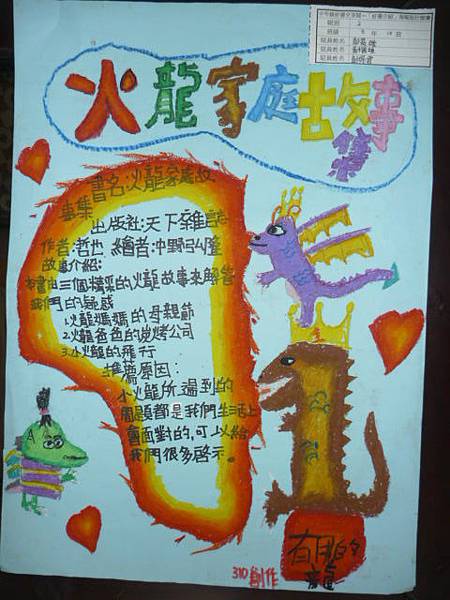 火龍家庭故事集
書名:火龍家庭故
事集
出版社:天下雜誌
作者:哲也 繪者:水野弘隆
故事介紹:
本書由三個精采的火龍故事來解答
我們的疑惑
1.火龍媽媽的母親節
2.火龍爸爸的炭烤公司
3.小火龍的飛行
推薦原因:
小火龍所遇到的
問題都是我們生活上
會面對的,可以給
我們很多啟示。
有用的
龍
310創作
組別
班級
組員姓名
組員姓名
組員姓名